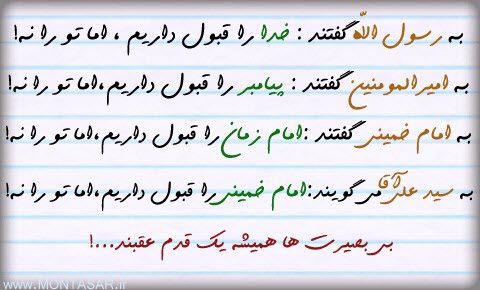 به رسول الله گفتند : خدا را قبول داریم ، اما تو را نه!
به امیرالمومنین گفتند : پیامبر را قبول داریم،اما تو را نه!
به امام خمینی گفتند :امام زمان را قبول داریم،اما تو را نه!
به سید علی آقا می گویند:امام خمینی را قبول داریم،اما تو را نه!
بی بصیرت ها همیشه یک قدم عقبند...!
WWW.MONTASAR.ir